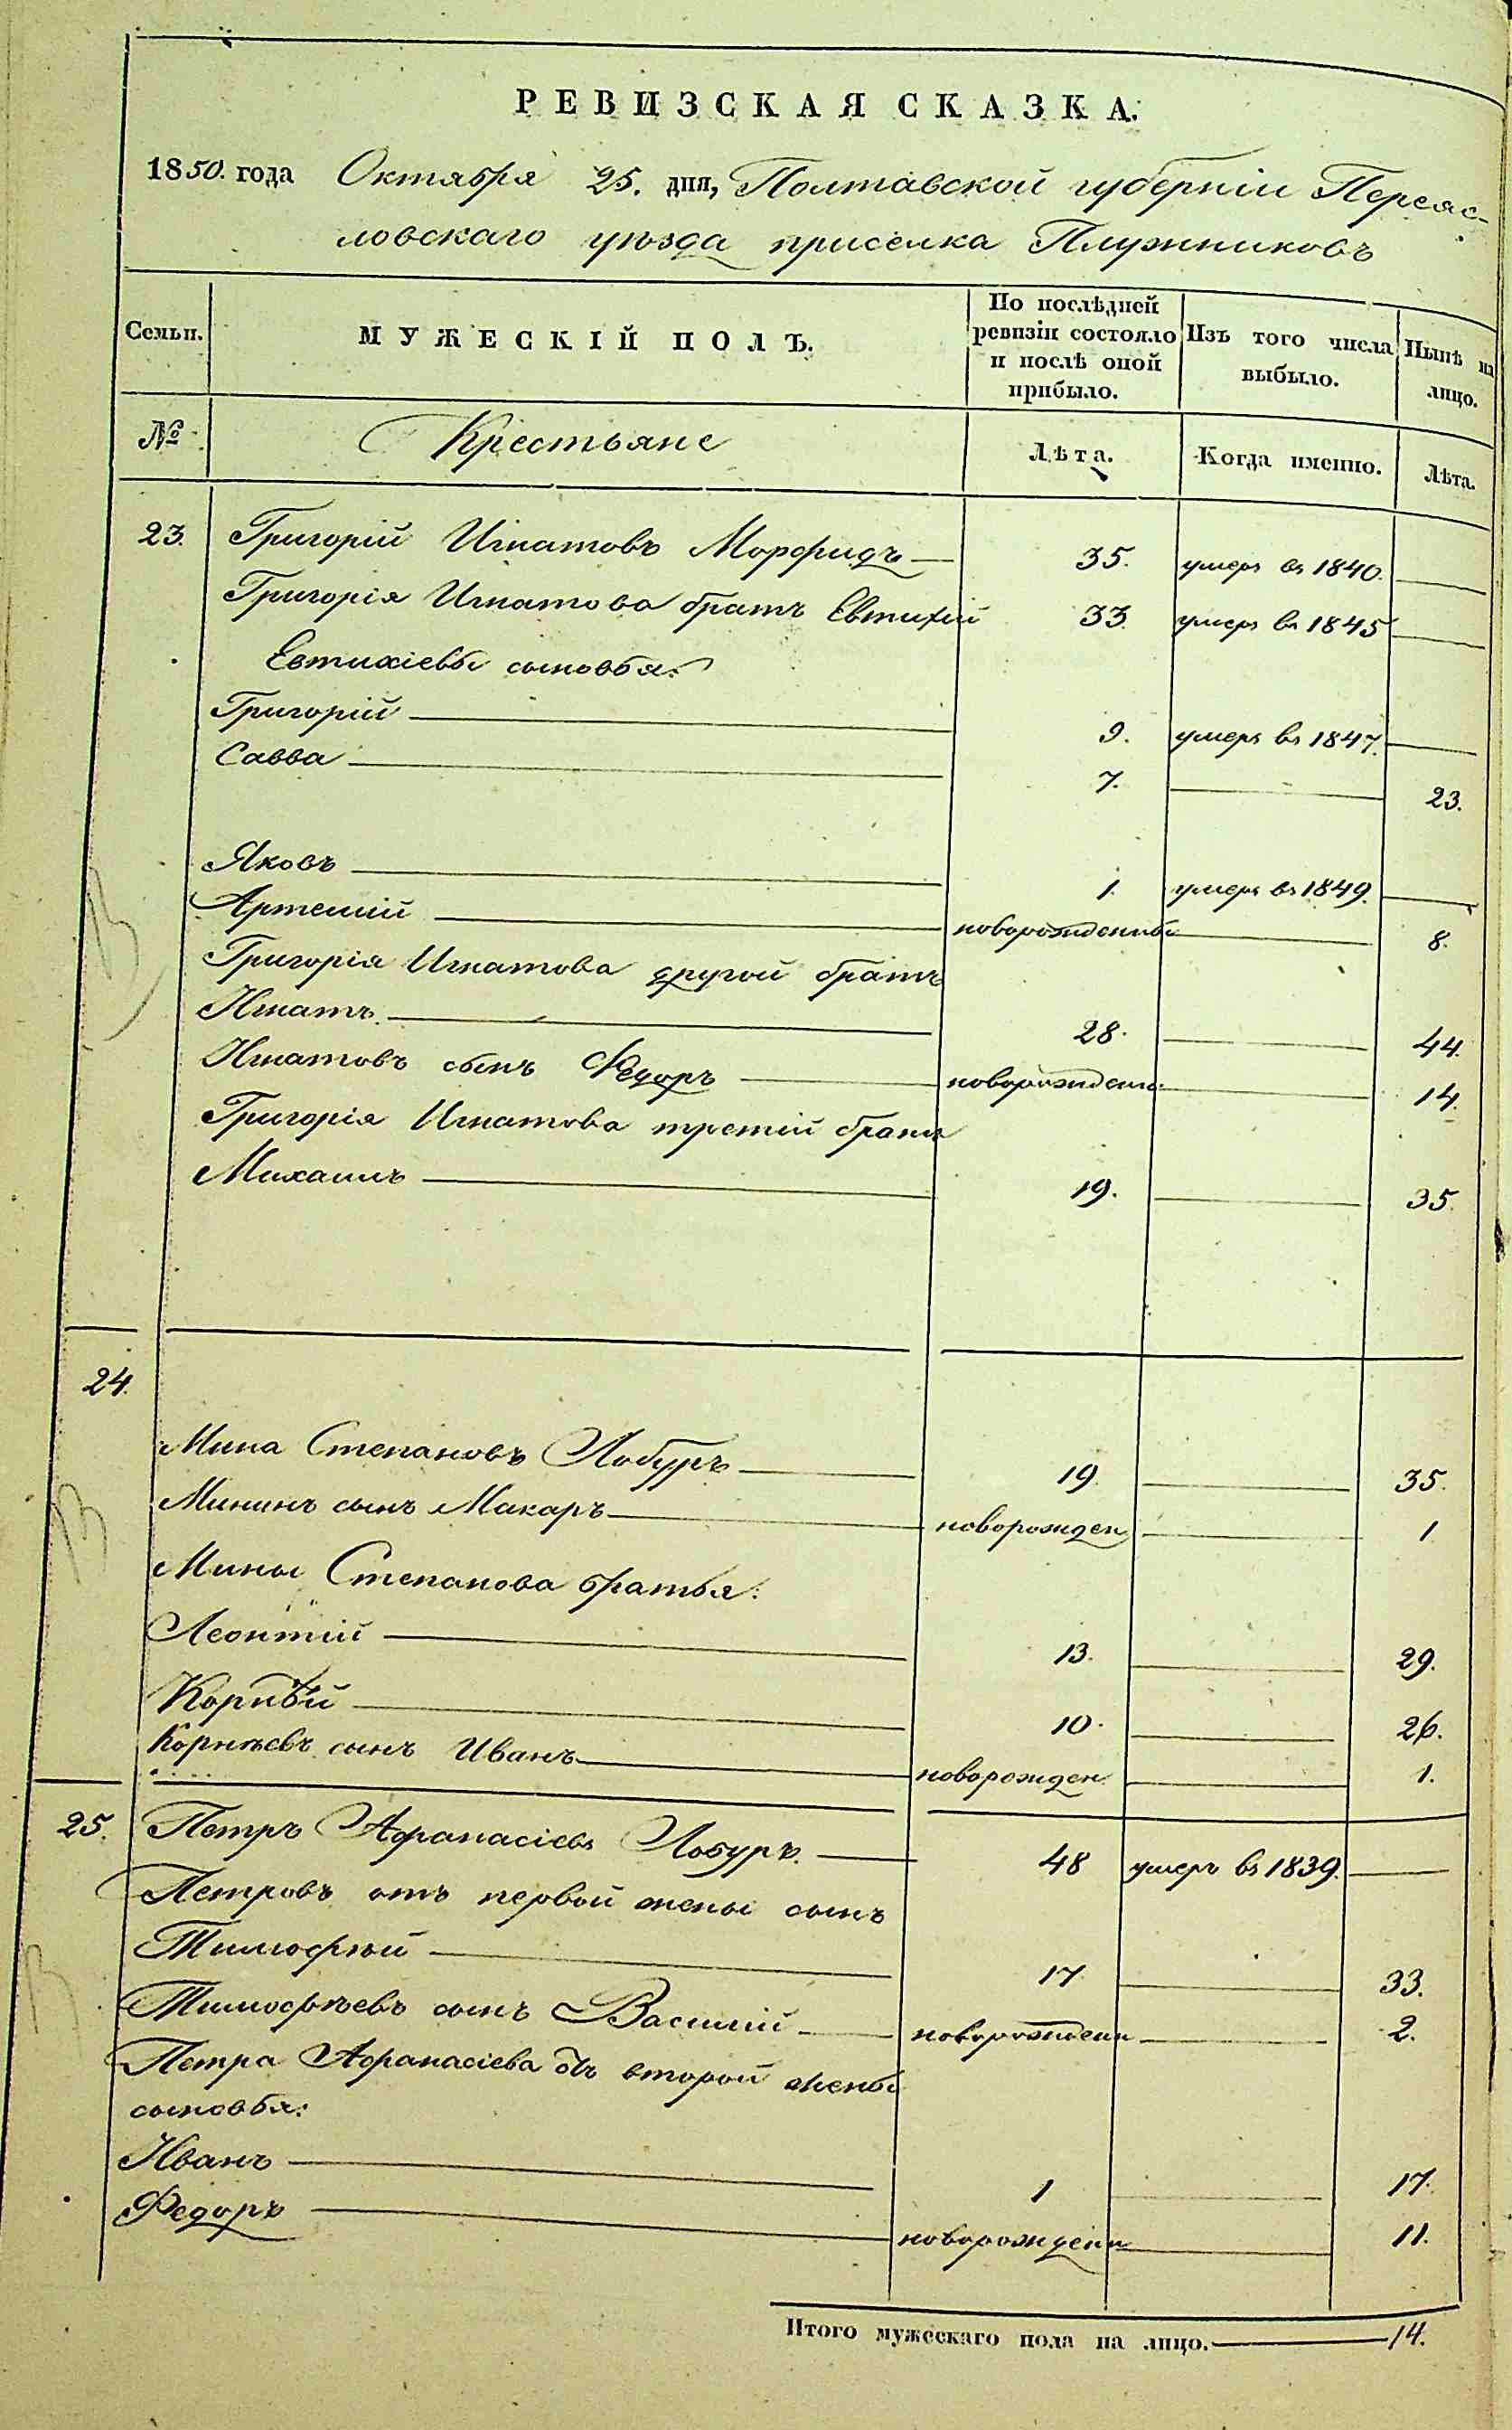 РЕВИЗСКАЯ СКАЗКА.
1850. года Октября 25. дня, Полтавской губерніи Переяс-
ловскаго уѣзда приселка Плужниковъ
Семьи. МУЖЕСКІЙ ПОЛЪ. По послѣдней ревизіи состояло и послѣ оной прибыло. Изъ того числа выбыло. Нынѣ на лицо.
№ Крестьяне Лѣта. Когда именно. Лѣта.
23. Григорій Игнатовъ 35. умеръ въ 1840.
Григорія Игнатова братъ Евтихій 33. умеръ въ 1845
Евтихіевы сыновья:
Григорій 9. умеръ въ 1847.
Савва 7. 23.
Яковъ 1. умеръ въ 1849.
Артемій новорожденный 8.
Григорія Игнатова другой братъ
Игнатъ 28. 44.
Игнатовъ сынъ Федоръ новорожденъ 14.
Григорія Игнатова третій братъ
Михаилъ 19. 35.
24.
Мина Степановъ Лобуръ 19. 35.
Мининъ сынъ Макаръ новорожден 1
Мины Степанова братья:
Леонтій 13. 29.
Корнѣй 10. 26.
Корнѣевъ сынъ Иванъ новорожден. 1.
25. Петръ Афанасіевъ Лобуръ. 48 умеръ въ 1839.
Петровъ отъ первой жены сынъ
Тимофѣй 17 33.
Тимофѣевъ сынъ Василій новорожденн 2.
Петра Афанасіева отъ второй жены
сыновья:
Иванъ 1 17.
Федоръ новорожденн 11.
Итого мужескаго пола на лицо. 14.